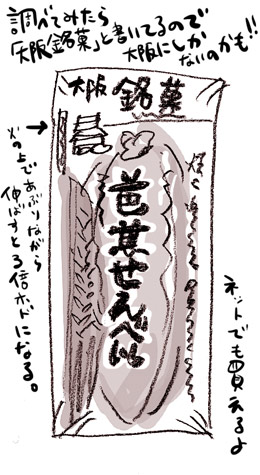 調べてみたら
「大阪銘菓」と書いてるので
大阪にしか
ないのかも!!
大阪 銘菓
芭蕉せんべい
火の上であぶりながら
伸ばすと3倍ホドになる。
ネットでも買えるよ